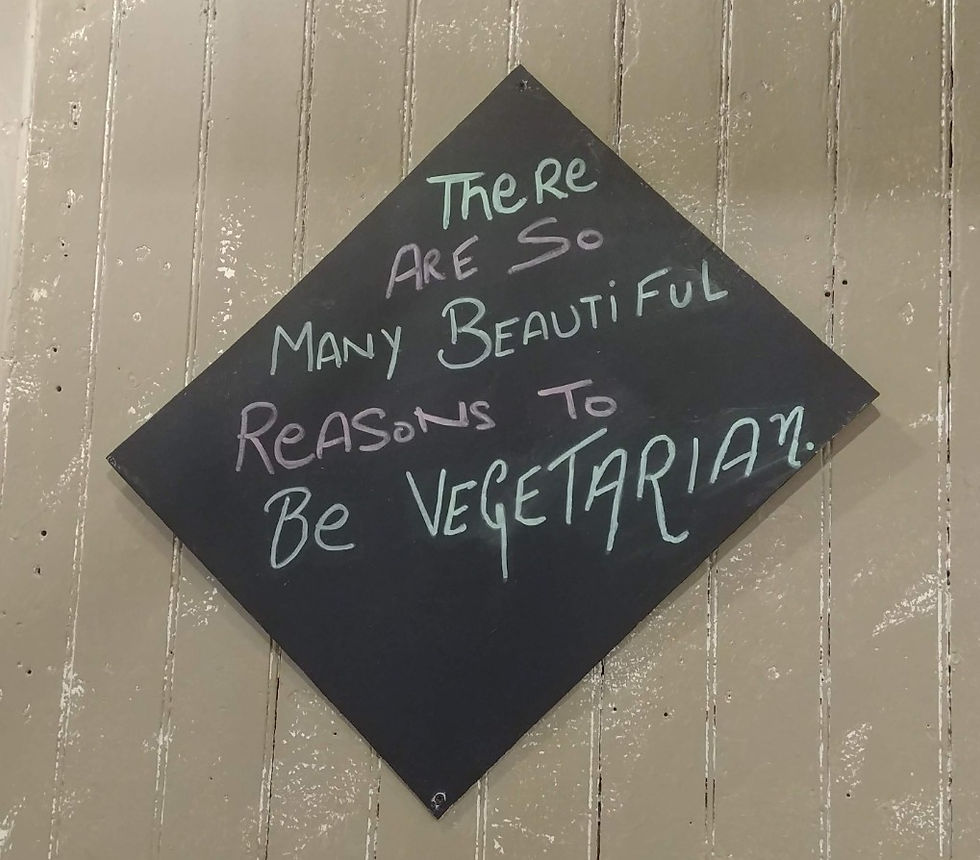 TheRe
ARE So
MANY BEAUTiFUL
ReASoNS To
Be VEGETARIAn.